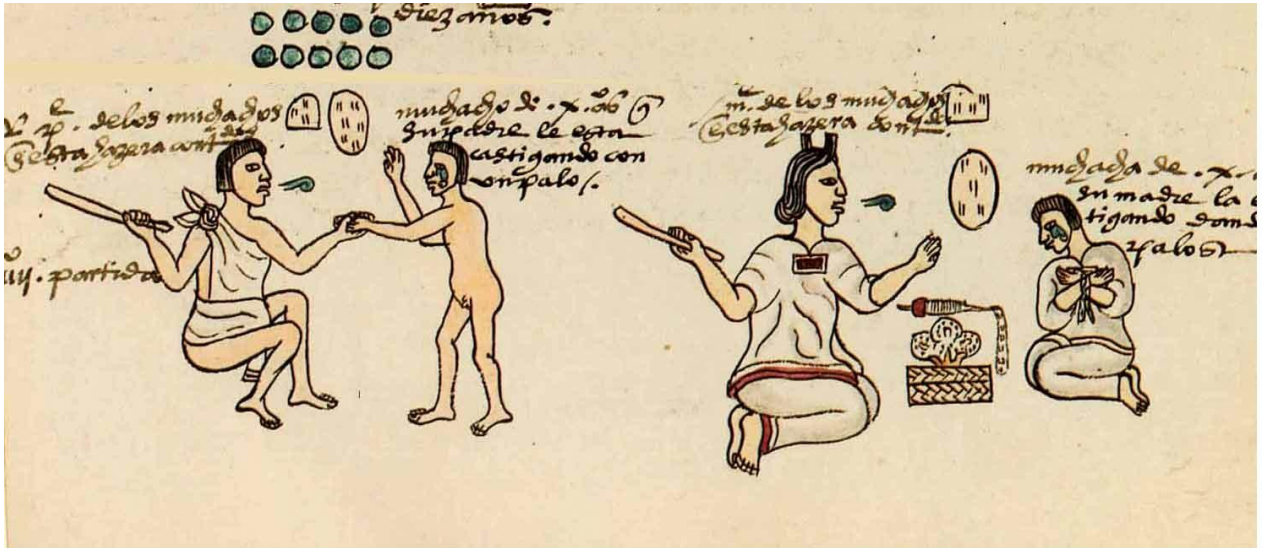 diez años.
p.e de los muchachos
q̃ esta hazera cont.do
muchacho de .x. años q̃
su padre le esta
castigando con
un palo /.
iiij. partida
m.e de los muchachos
q̃ esta hazera cont.do
muchacha de .x.
su madre la
tigando dand
palos